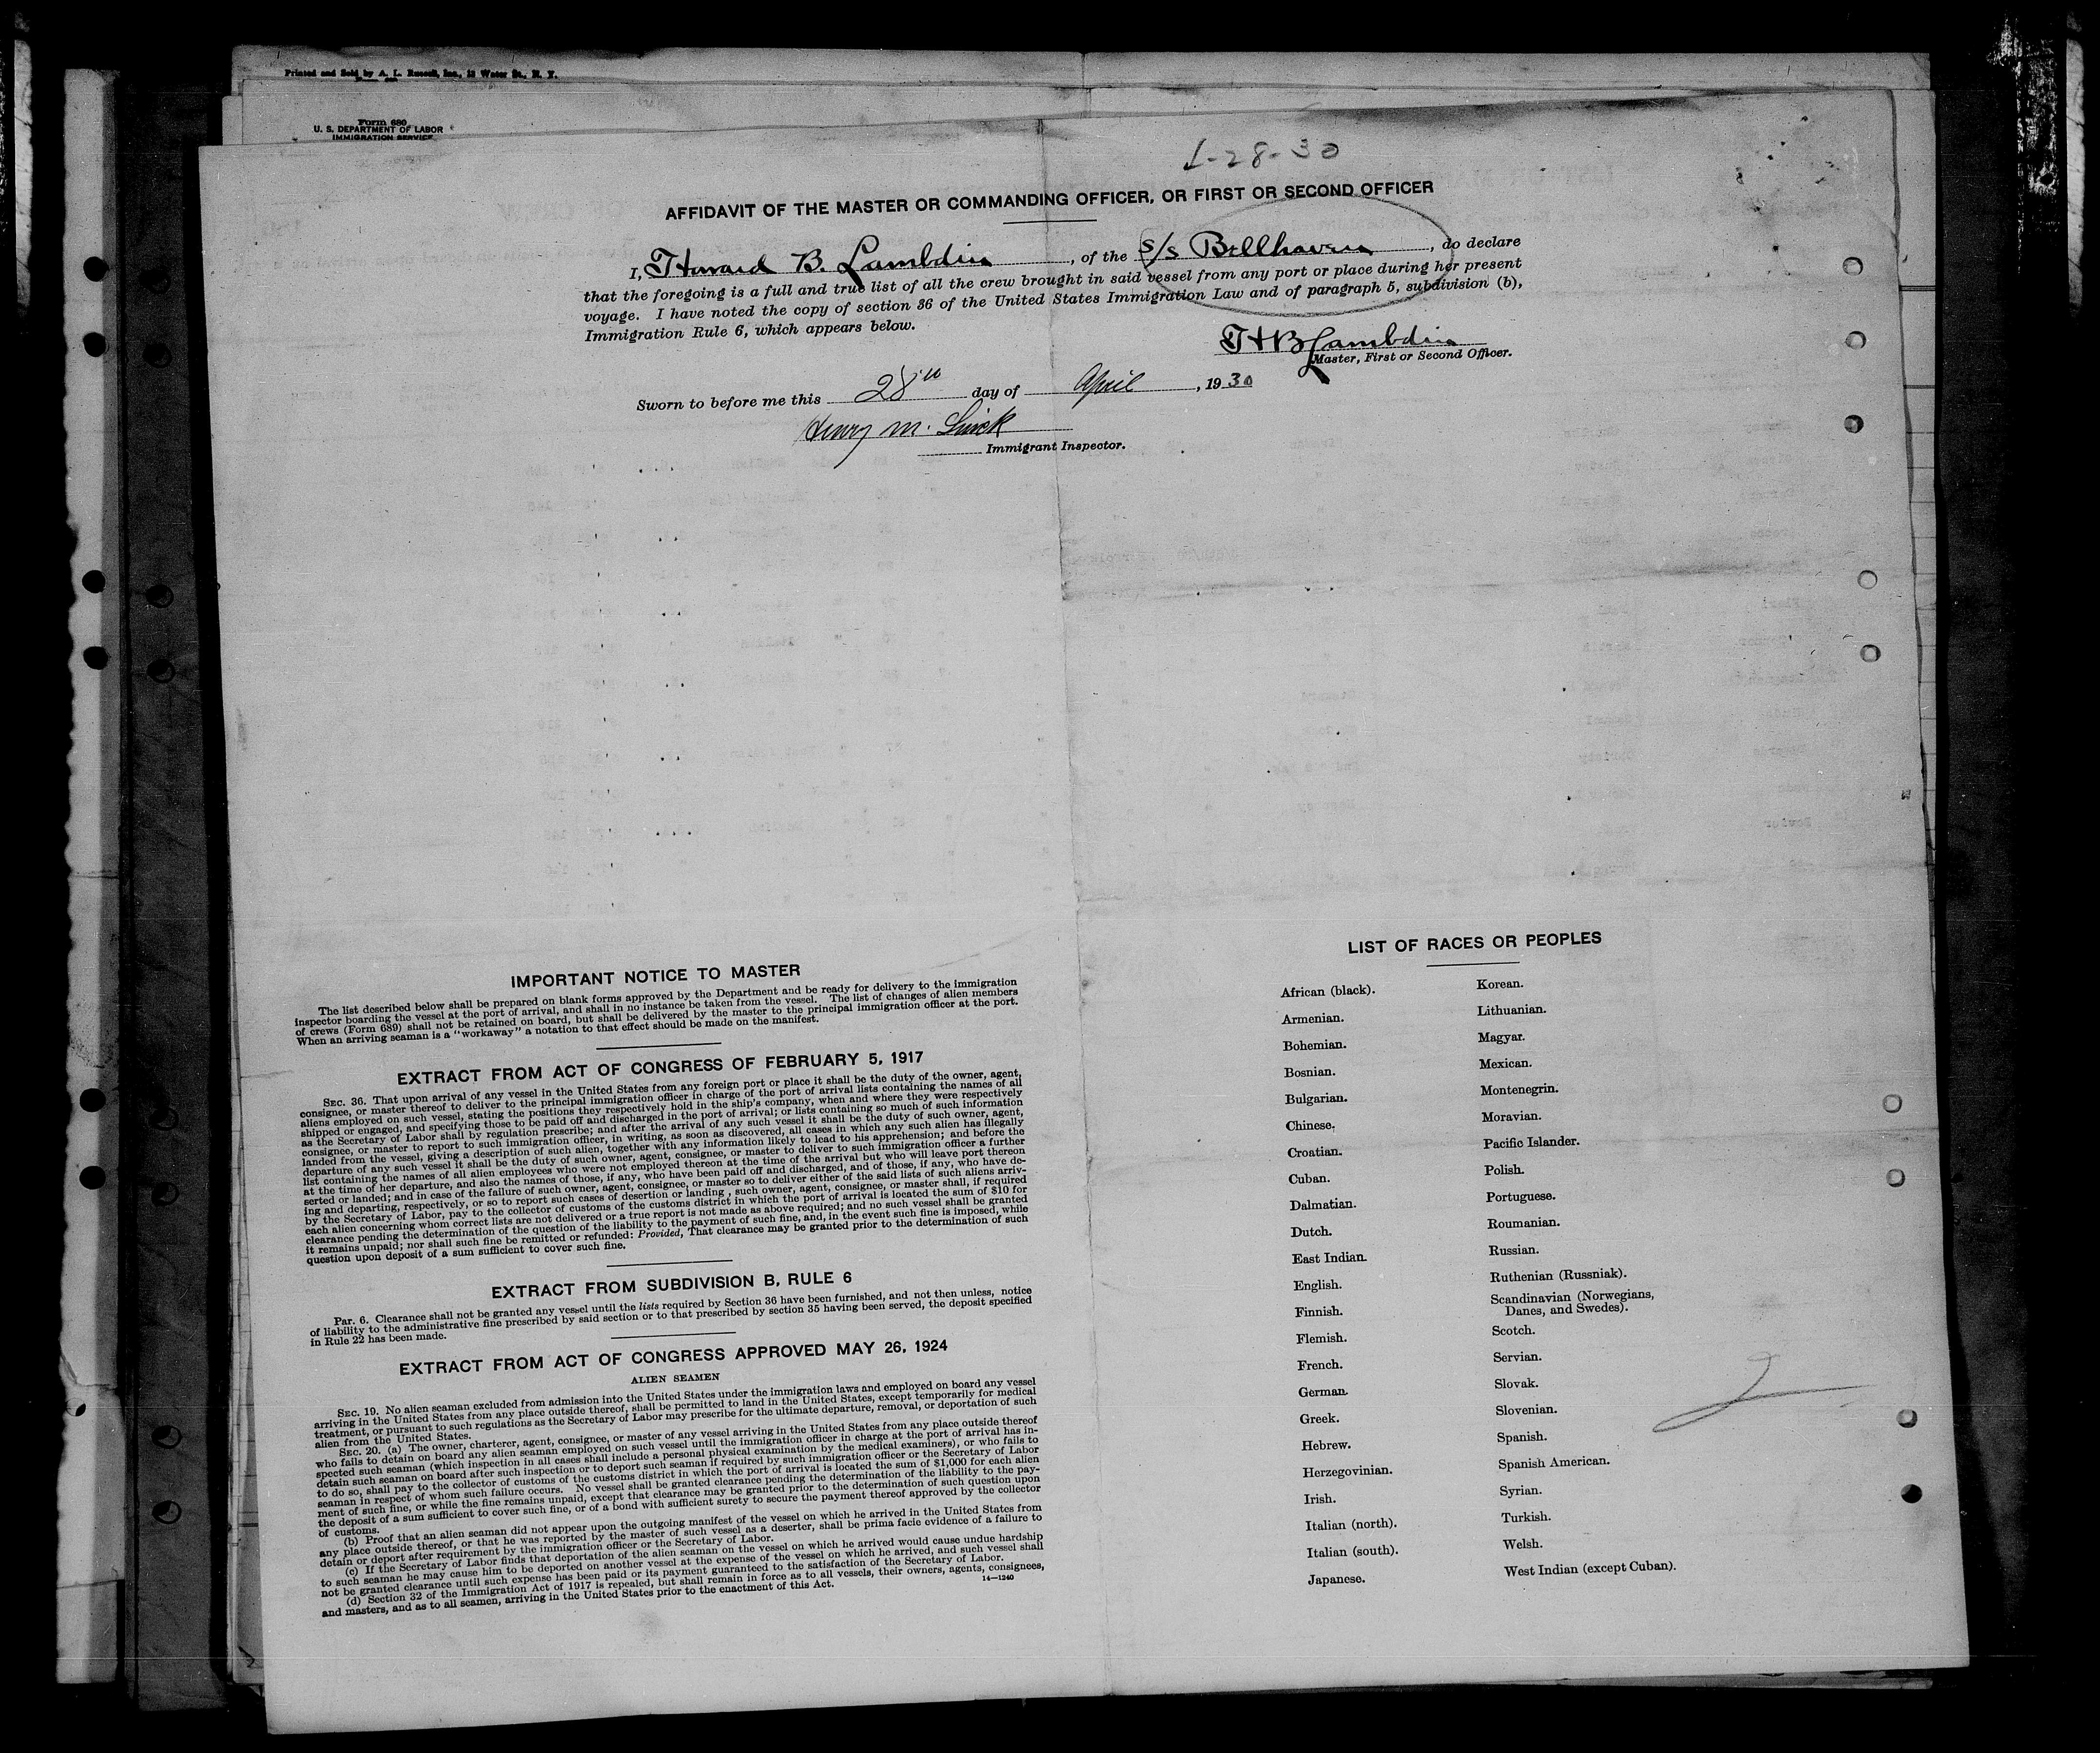 Printed and Sold by A. L. Russell, Inc., 12 Water St., N. Y.
Form 680
U. S. DEPARTMENT OF LABOR
IMMIGRATION SERVICE
4-28-30
AFFIDAVIT OF THE MASTER OR COMMANDING OFFICER, OR FIRST OR SECOND OFFICER
I, Howard B. Lambdin, of the S/s Bellhaven, do declare
that the foregoing is a full and true list of all the crew brought in said vessel from any port or place during her present
voyage. I have noted the copy of section 36 of the United States Immigration Law and of paragraph 5, subdivision (b),
Immigration Rule 6, which appears below.
HBLambdin
Master, First or Second Officer.
Sworn to before me this 28th day of April, 1930
Henry M.
Immigrant Inspector.
IMPORTANT NOTICE TO MASTER
The list described below shall be prepared on blank forms approved by the Department and be ready for delivery to the immigration
inspector boarding the vessel at the port of arrival, and shall in no instance be taken from the vessel. The list of changes of alien members
of crews (Form 689) shall not be retained on board, but shall be delivered by the master to the principal immigration officer at the port.
When an arriving seaman is a "workaway" a notation to that effect should be made on the manifest.
EXTRACT FROM ACT OF CONGRESS OF FEBRUARY 5, 1917
SEC. 36. That upon arrival of any vessel in the United States from any foreign port or place it shall be the duty of the owner, agent,
consignee, or master thereof to deliver to the principal immigration officer in charge of the port of arrival lists containing the names of all
aliens employed on such vessel, stating the positions they respectively hold in the ship's company, when and where they were respectively
shipped or engaged, and specifying those to be paid off and discharged in the port of arrival; or lists containing so much of such information
as the Secretary of Labor shall by regulation prescribe; and after the arrival of any such vessel it shall be the duty of such owner, agent,
consignee, or master to report to such immigration officer, in writing, as soon as discovered, all cases in which any such alien has illegally
landed from the vessel, giving a description of such alien, together with any information likely to lead to his apprehension; and before the
departure of any such vessel it shall be the duty of such owner, agent, consignee, or master to deliver to such immigration officer a further
list containing the names of all alien employees who were not employed thereon at the time of the arrival but who will leave port thereon
at the time of her departure, and also the names of those, if any, who have been paid off and discharged, and of those, if any, who have de-
serted or landed; and in case of the failure of such owner, agent, consignee, or master so to deliver either of the said lists of such aliens arriv-
ing and departing, respectively, or so to report such cases of desertion or landing , such owner, agent, consignee, or master shall, if required
by the Secretary of Labor, pay to the collector of customs of the customs district in which the port of arrival is located the sum of $10 for
each alien concerning whom correct lists are not delivered or a true report is not made as above required; and no such vessel shall be granted
clearance pending the determination of the question of the liability to the payment of such fine, and, in the event such fine is imposed, while
it remains unpaid; nor shall such fine be remitted or refunded: Provided, That clearance may be granted prior to the determination of such
question upon deposit of a sum sufficient to cover such fine.
EXTRACT FROM SUBDIVISION B, RULE 6
Par. 6. Clearance shall not be granted any vessel until the lists required by Section 36 have been furnished, and not then unless, notice
of liability to the administrative fine prescribed by said section or to that prescribed by section 35 having been served, the deposit specified
in Rule 22 has been made.
EXTRACT FROM ACT OF CONGRESS APPROVED MAY 26, 1924
ALIEN SEAMEN
SEC. 19. No alien seaman excluded from admission into the United States under the immigration laws and employed on board any vessel
arriving in the United States from any place outside thereof, shall be permitted to land in the United States, except temporarily for medical
treatment, or pursuant to such regulations as the Secretary of Labor may prescribe for the ultimate departure, removal, or deportation of such
alien from the United States.
SEC. 20. (a) The owner, charterer, agent, consignee, or master of any vessel arriving in the United States from any place outside thereof
who fails to detain on board any alien seaman employed on such vessel until the immigration officer in charge at the port of arrival has in-
spected such seaman (which inspection in all cases shall include a personal physical examination by the medical examiners), or who fails to
detain such seaman on board after such inspection or to deport such seaman if required by such immigration officer or the Secretary of Labor
to do so, shall pay to the collector of customs of the customs district in which the port of arrival is located the sum of $1,000 for each alien
seaman in respect of whom such failure occurs. No vessel shall be granted clearance pending the determination of the liability to the pay-
ment of such fine, or while the fine remains unpaid, except that clearance may be granted prior to the determination of such question upon
the deposit of a sum sufficient to cover such fine, or of a bond with sufficient surety to secure the payment thereof approved by the collector
of customs.
(b) Proof that an alien seaman did not appear upon the outgoing manifest of the vessel on which he arrived in the United States from
any place outside thereof, or that he was reported by the master of such vessel as a deserter, shall be prima facie evidence of a failure to
detain or deport after requirement by the immigration officer or the Secretary of Labor.
(c) If the Secretary of Labor finds that deportation of the alien seaman on the vessel on which he arrived would cause undue hardship
to such seaman he may cause him to be deported on another vessel at the expense of the vessel on which he arrived, and such vessel shall
not be granted clearance until such expense has been paid or its payment guaranteed to the satisfaction of the Secretary of Labor.
(d) Section 32 of the Immigration Act of 1917 is repealed, but shall remain in force as to all vessels, their owners, agents, consignees,
and masters, and as to all seamen, arriving in the United States prior to the enactment of this Act.
14—1240
LIST OF RACES OR PEOPLES
African (black).
Armenian.
Bohemian.
Bosnian.
Bulgarian.
Chinese.
Croatian.
Cuban.
Dalmatian.
Dutch.
East Indian.
English.
Finnish.
Flemish.
French.
German.
Greek.
Hebrew.
Herzegovinian.
Irish.
Italian (north).
Italian (south).
Japanese.
Korean.
Lithuanian.
Magyar.
Mexican.
Montenegrin.
Moravian.
Pacific Islander.
Polish.
Portuguese.
Roumanian.
Russian.
Ruthenian (Russniak).
Scandinavian (Norwegians,
Danes, and Swedes).
Scotch.
Servian.
Slovak.
Slovenian.
Spanish.
Spanish American.
Syrian.
Turkish.
Welsh.
West Indian (except Cuban).
2